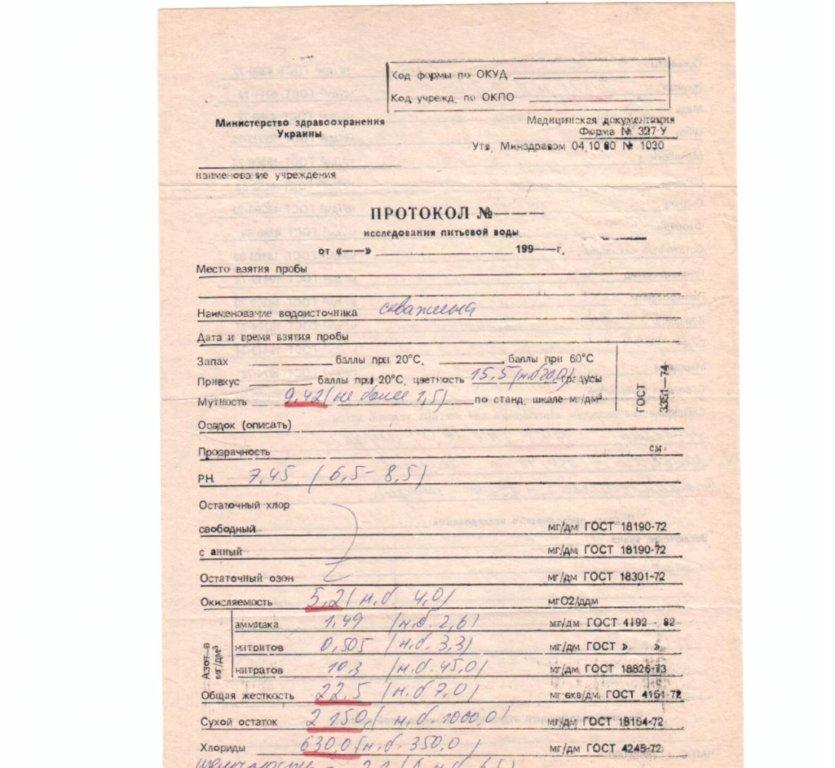 Код формы по ОКУД
Код учрежд. по ОКПО
Министерство здравоохранения
Украины
Медицинская документация
Форма № 327-У
Утв. Минздравом 04.10.80 № 1030
наименование учреждения
ПРОТОКОЛ №
исследования питьевой воды
от «——» 199 г.
Место взятия пробы
Наименование водоисточника скважина
Дата и время взятия пробы
Запах баллы при 20°С, баллы при 60°С
Привкус баллы при 20°С, цветность 15,5 (н.б 20,0) градусы
Мутность 9,42 (не более 1,5) по станд. шкале мг/дм³
ГОСТ 3351—74
Осадок (описать)
Прозрачность см.
РН 7,45 (6,5-8,5)
Остаточный хлор
свободный мг/дм ГОСТ 18190-72
с анный мг/дм ГОСТ 18190-72
Остаточный озон мг/дм ГОСТ 18301-72
Окисляемость 5,2 (н.б. 4,0) мгО2/ддм
Азот—в мг/дм³
аммиака 1,49 (н.б. 2,6) мг/дм ГОСТ 4192 - 82
нитритов 0,505 (н.б. 3,3) мг/дм ГОСТ » »
нитратов 10,3 (н.б. 45,0) мг/дм ГОСТ 18826-73
Общая жесткость 22,5 (н.б 7,0) мг-экв/дм ГОСТ 4151-72
Сухой остаток 2150 (н.б. 1000,0) мг/дм ГОСТ 18164-72
Хлориды 630,0 (н.б. 350,0) мг/дм ГОСТ 4245-72